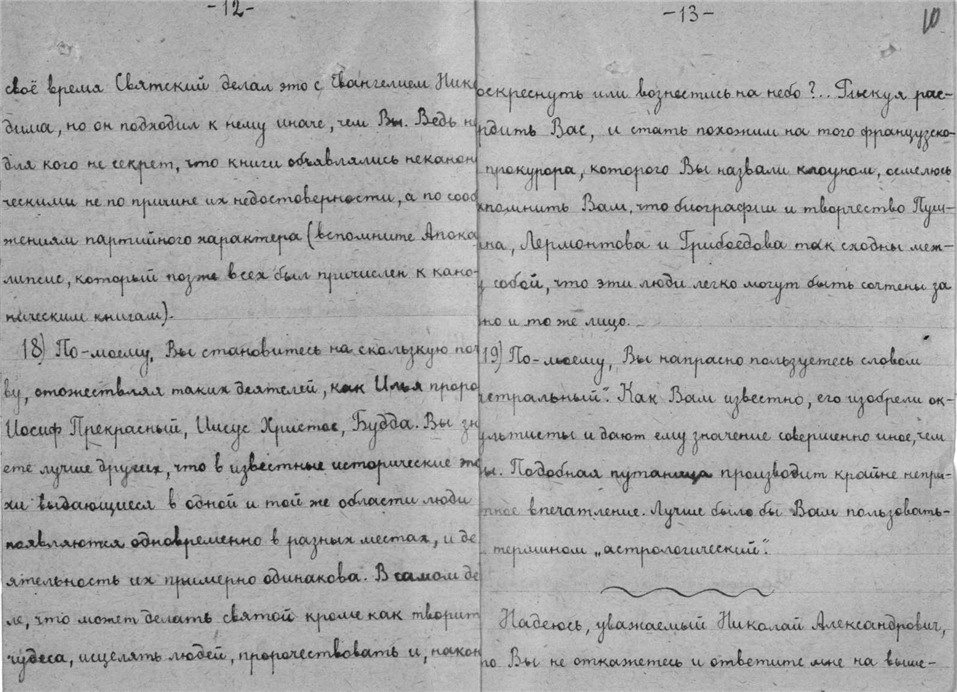 -12-
своё время Святский делал это с Евангелием Нико
дима, но он подходил к нему иначе, чем Вы. Ведь н
для кого не секрет, что книги объявлялись неканон
ческими не по причине их недостоверности, а по сооб
жениям партийного характера (вспомните Апока
липсис, который позже всех был причислен к кано-
ническим книгам).
18) По-моему, Вы становитесь на скользкую поч
ву, отожествляя таких деятелей, как Илья проро
Иосиф Прекрасный, Иисус Христос, Будда. Вы зн
ете лучше других, что в известные исторические эпо
хи выдающиеся в одной и той же области люди
появляются одновременно в разных местах, и де
ятельность их примерно одинакова. В самом де
ле, что может делать святой кроме как творит
чудеса, исцелять людей, пророчествовать и, након
-13-
10
оскреснуть или вознестись на небо?.. Рискуя рас-
рдить Вас, и стать похожим на того французско-
прокурора, которого Вы назвали клоуном, осмелюсь
апомнить Вам, что биографии и творчество Пуш-
ина, Лермонтова и Грибоедова так сходны меж-
у собой, что эти люди легко могут быть сочтены за
но и то же лицо.
19) По-моему, Вы напрасно пользуетесь словом
астральный". Как Вам известно, его изобрели ок-
ультисты и дают ему значение совершенно иное, чем
Вы. Подобная путаница производит крайне непри-
тное впечатление. Лучше было бы Вам пользовать-
термином „астрологический".
Надеюсь, уважаемый Николай Александрович,
то Вы не откажетесь и ответите мне на выше-